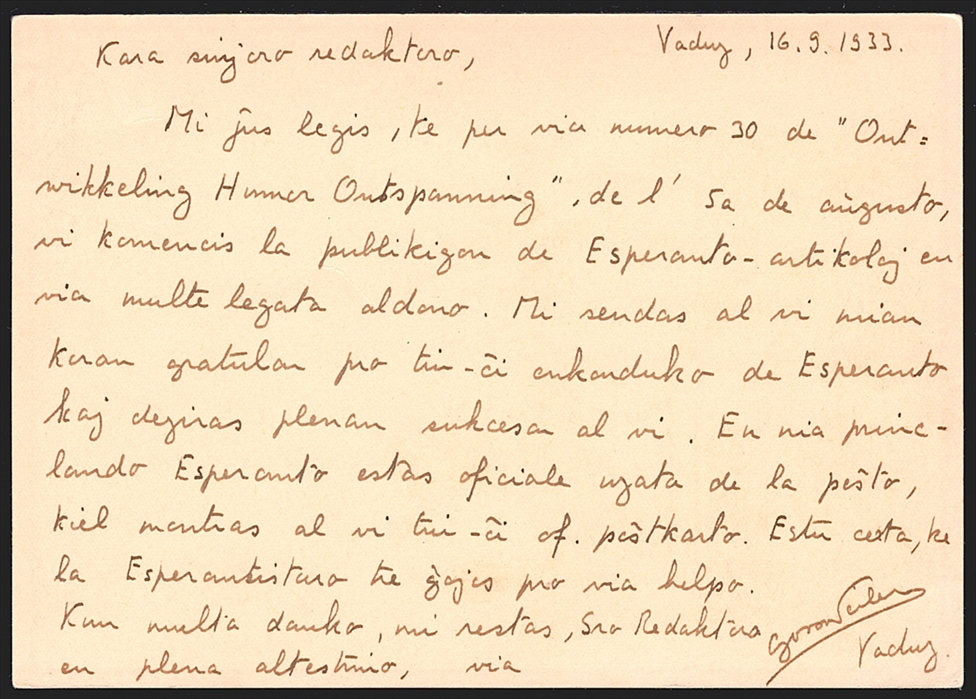 Vaduz, 16.9.1933.
Kara sinjoro redaktoro,
Mi ĵus legis, ke per via numero 30 de "Ont=
wikkeling Humor Ontspanning", de l' 5a de aŭgusto,
vi komencis la publikigon de Esperanto-artikoloj en
via multe legata aldono. Mi sendas al vi mian
koran gratulon pro tiu-ĉi enkonduko de Esperanto
kaj deziras plenan sukceson al vi. En nia princ-
lando Esperanto estas oficiale uzata de la poŝto,
kiel montras al vi tiu-ĉi of. poŝtkarto. Estu certa, ke
la Esperantistaro tre ĝojos pro via helpo.
Kun multa danko, mi restas, Sro Redaktoro
en plena altestimo, via
Vaduz.